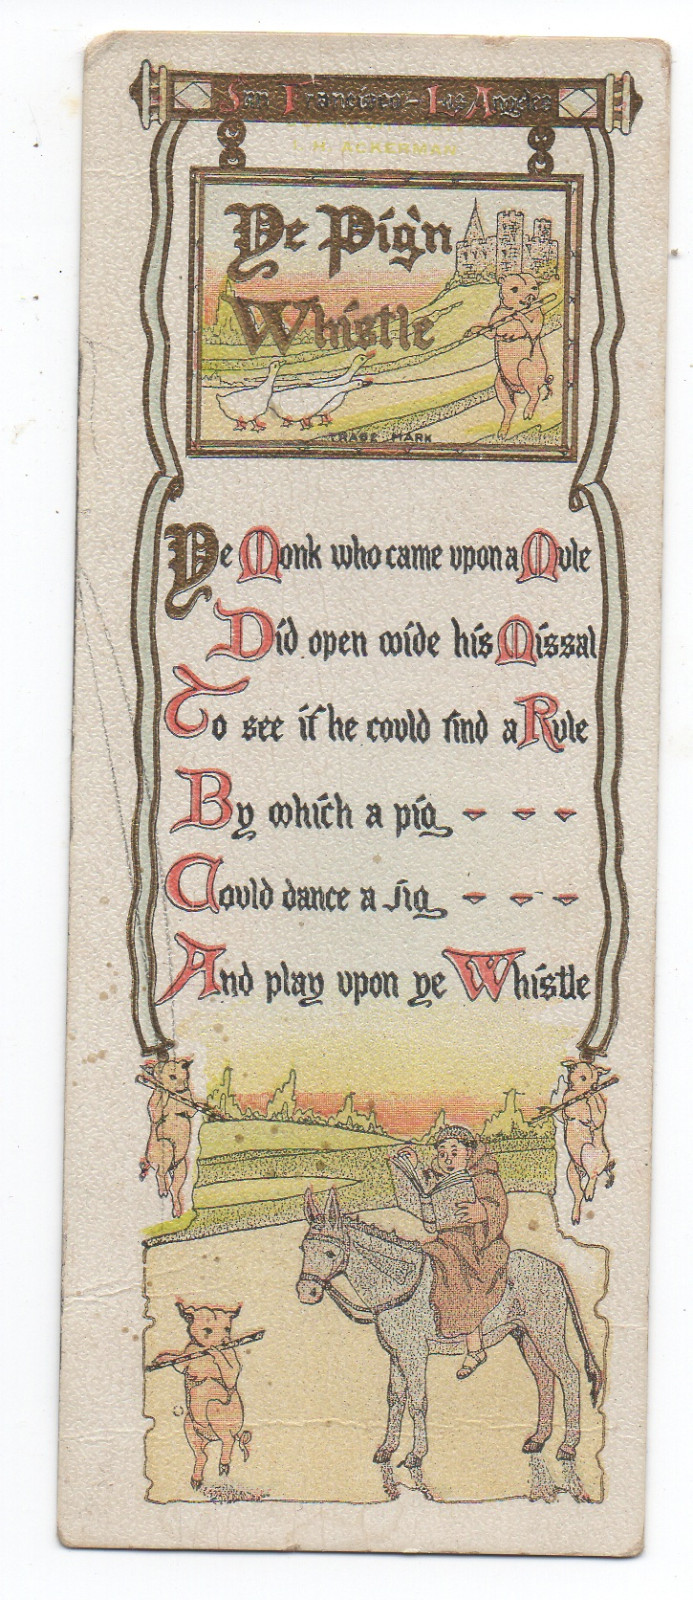 San Francisco – Los Angeles
I. H. ACKERMAN
Ye Pig'n
Whistle
TRADE MARK
Ye Monk who came upon a Mule
Did open wide his Missal
To see if he could find a Rule
By which a pig - - -
Could dance a jig - - -
And play upon ye Whistle